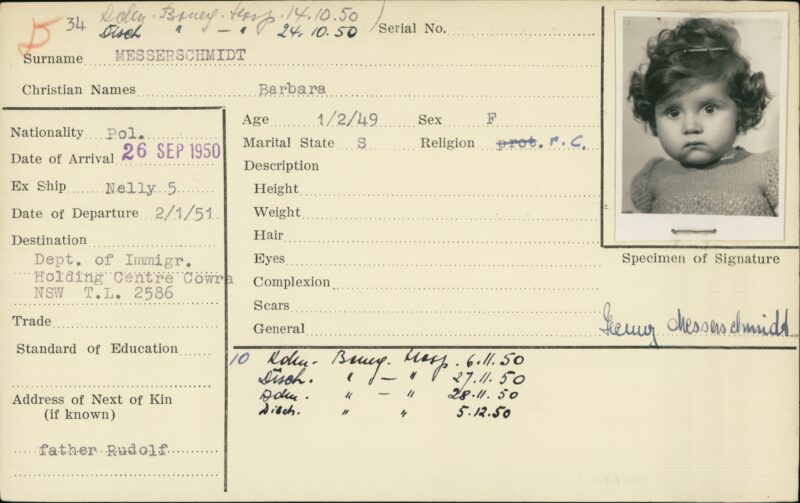 D 34 Adm. Boneg. Hosp. 14.10.50
Disch " — " 24.10.50
Serial No.
Surname MESSERSCHMIDT
Christian Names Barbara
Nationality Pol.
Date of Arrival 26 SEP 1950
Ex Ship Nelly 5
Date of Departure 2/1/51
Destination
Dept. of Immigr.
Holding Centre Cowra
NSW T.L. 2586
Trade
Standard of Education
Address of Next of Kin
(if known)
father Rudolf
Age 1/2/49 Sex F
Marital State S Religion prot. r.C.
Description
Height
Weight
Hair
Eyes
Complexion
Scars
General
Specimen of Signature
Messerschmidt
10 Adm. Boneg. Hosp. 6.11.50
Disch. " — " 27.11.50
Adm. " — " 28.11.50
Disch. " " 5.12.50